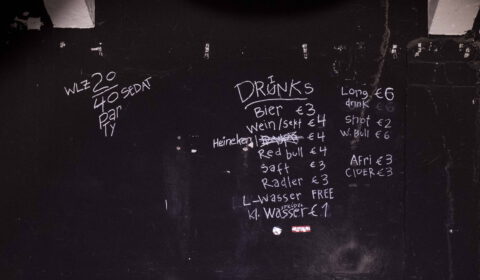 WLZ 20
40 SEDAT
Par
TY
DRINKS
Bier €3
Wein/sekt €4
Heineken €4
Red bull €4
Saft €3
Radler €3
L-wasser FREE
kl. Wasser €1
Long €6
drink
Shot €2
W. Bull €6
Afri €3
CIDER €3